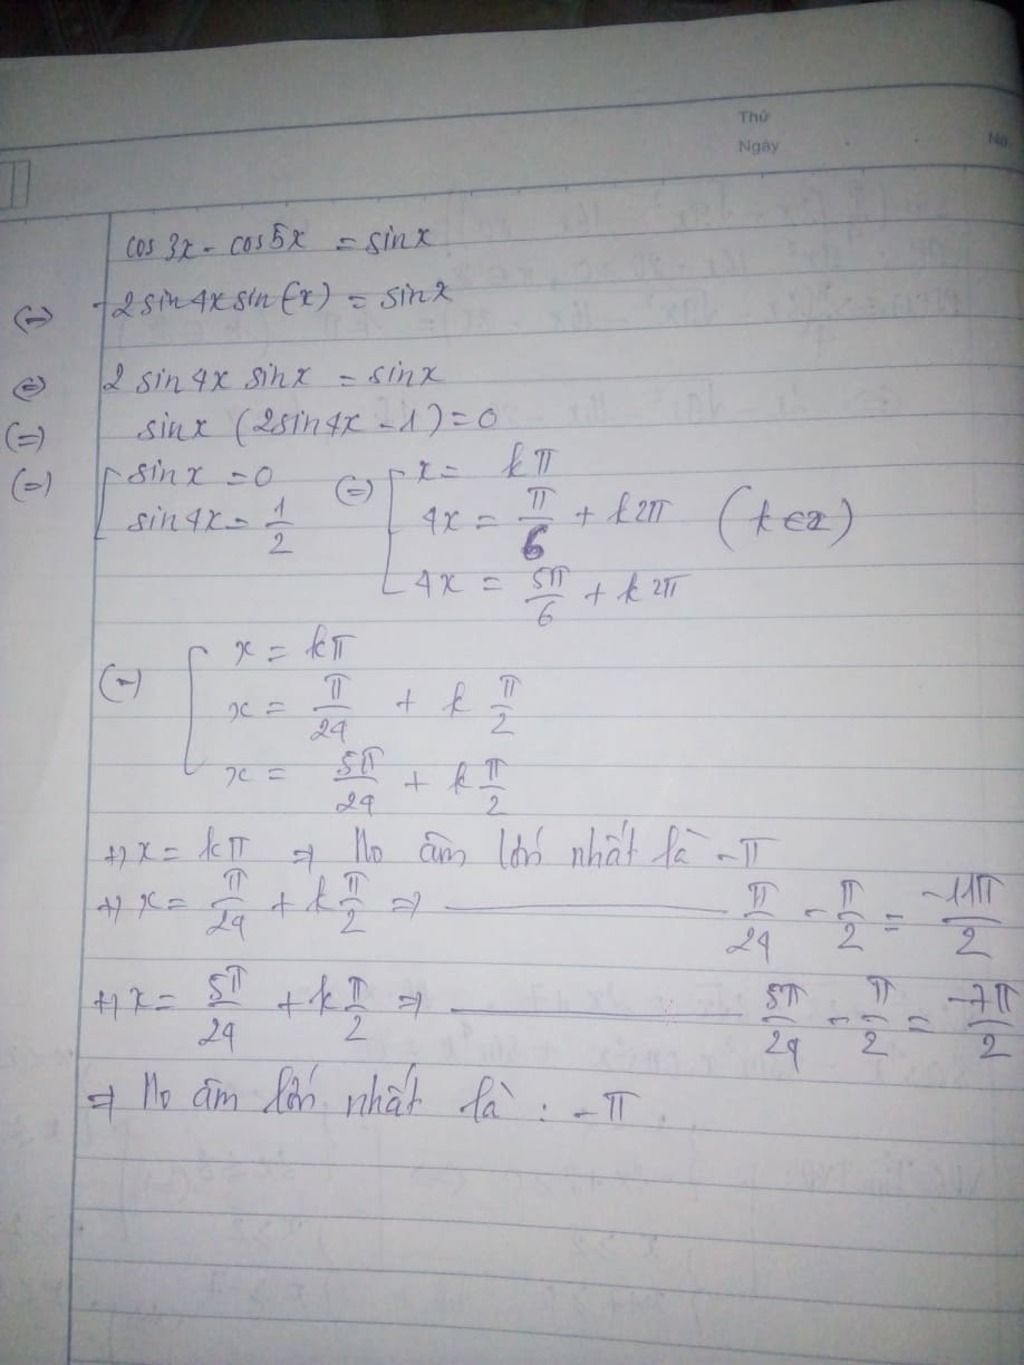 Thứ
Ngày
No
cos 3x - cos 5x = sin x
(=) -2 sin 4x sin (-x) = sin x
(=) 2 sin 4x sin x = sin x
(=) sin x (2 sin 4x - 1) = 0
(=) [ sin x = 0 (=) [ x = kπ
sin 4x = 1/2 4x = π/6 + k2π (k ∈ z)
4x = 5π/6 + k2π
(=) [ x = kπ
x = π/24 + k π/2
x = 5π/24 + k π/2
+) x = kπ => No âm lớn nhất là -π
+) x = π/24 + k π/2 => ——— π/24 - π/2 = -11π/2
+) x = 5π/24 + k π/2 => ——— 5π/24 - π/2 = -7π/2
=> No âm lớn nhất là : -π.